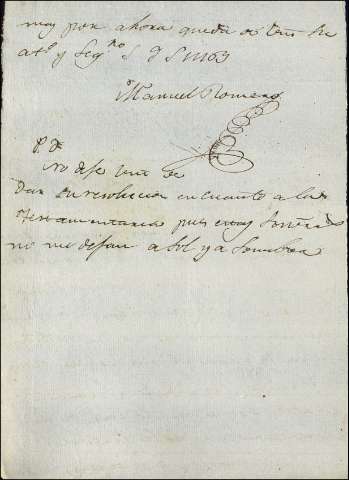 muy por ahora queda de Vm su
at.º y seg.ro S. q S M B
Manuel Romero
P.D.
No deje Vm de
Dar su resolucion en cuanto a la
Testamentaria pues estos Señores
no me dejan a Sol y a Sombra